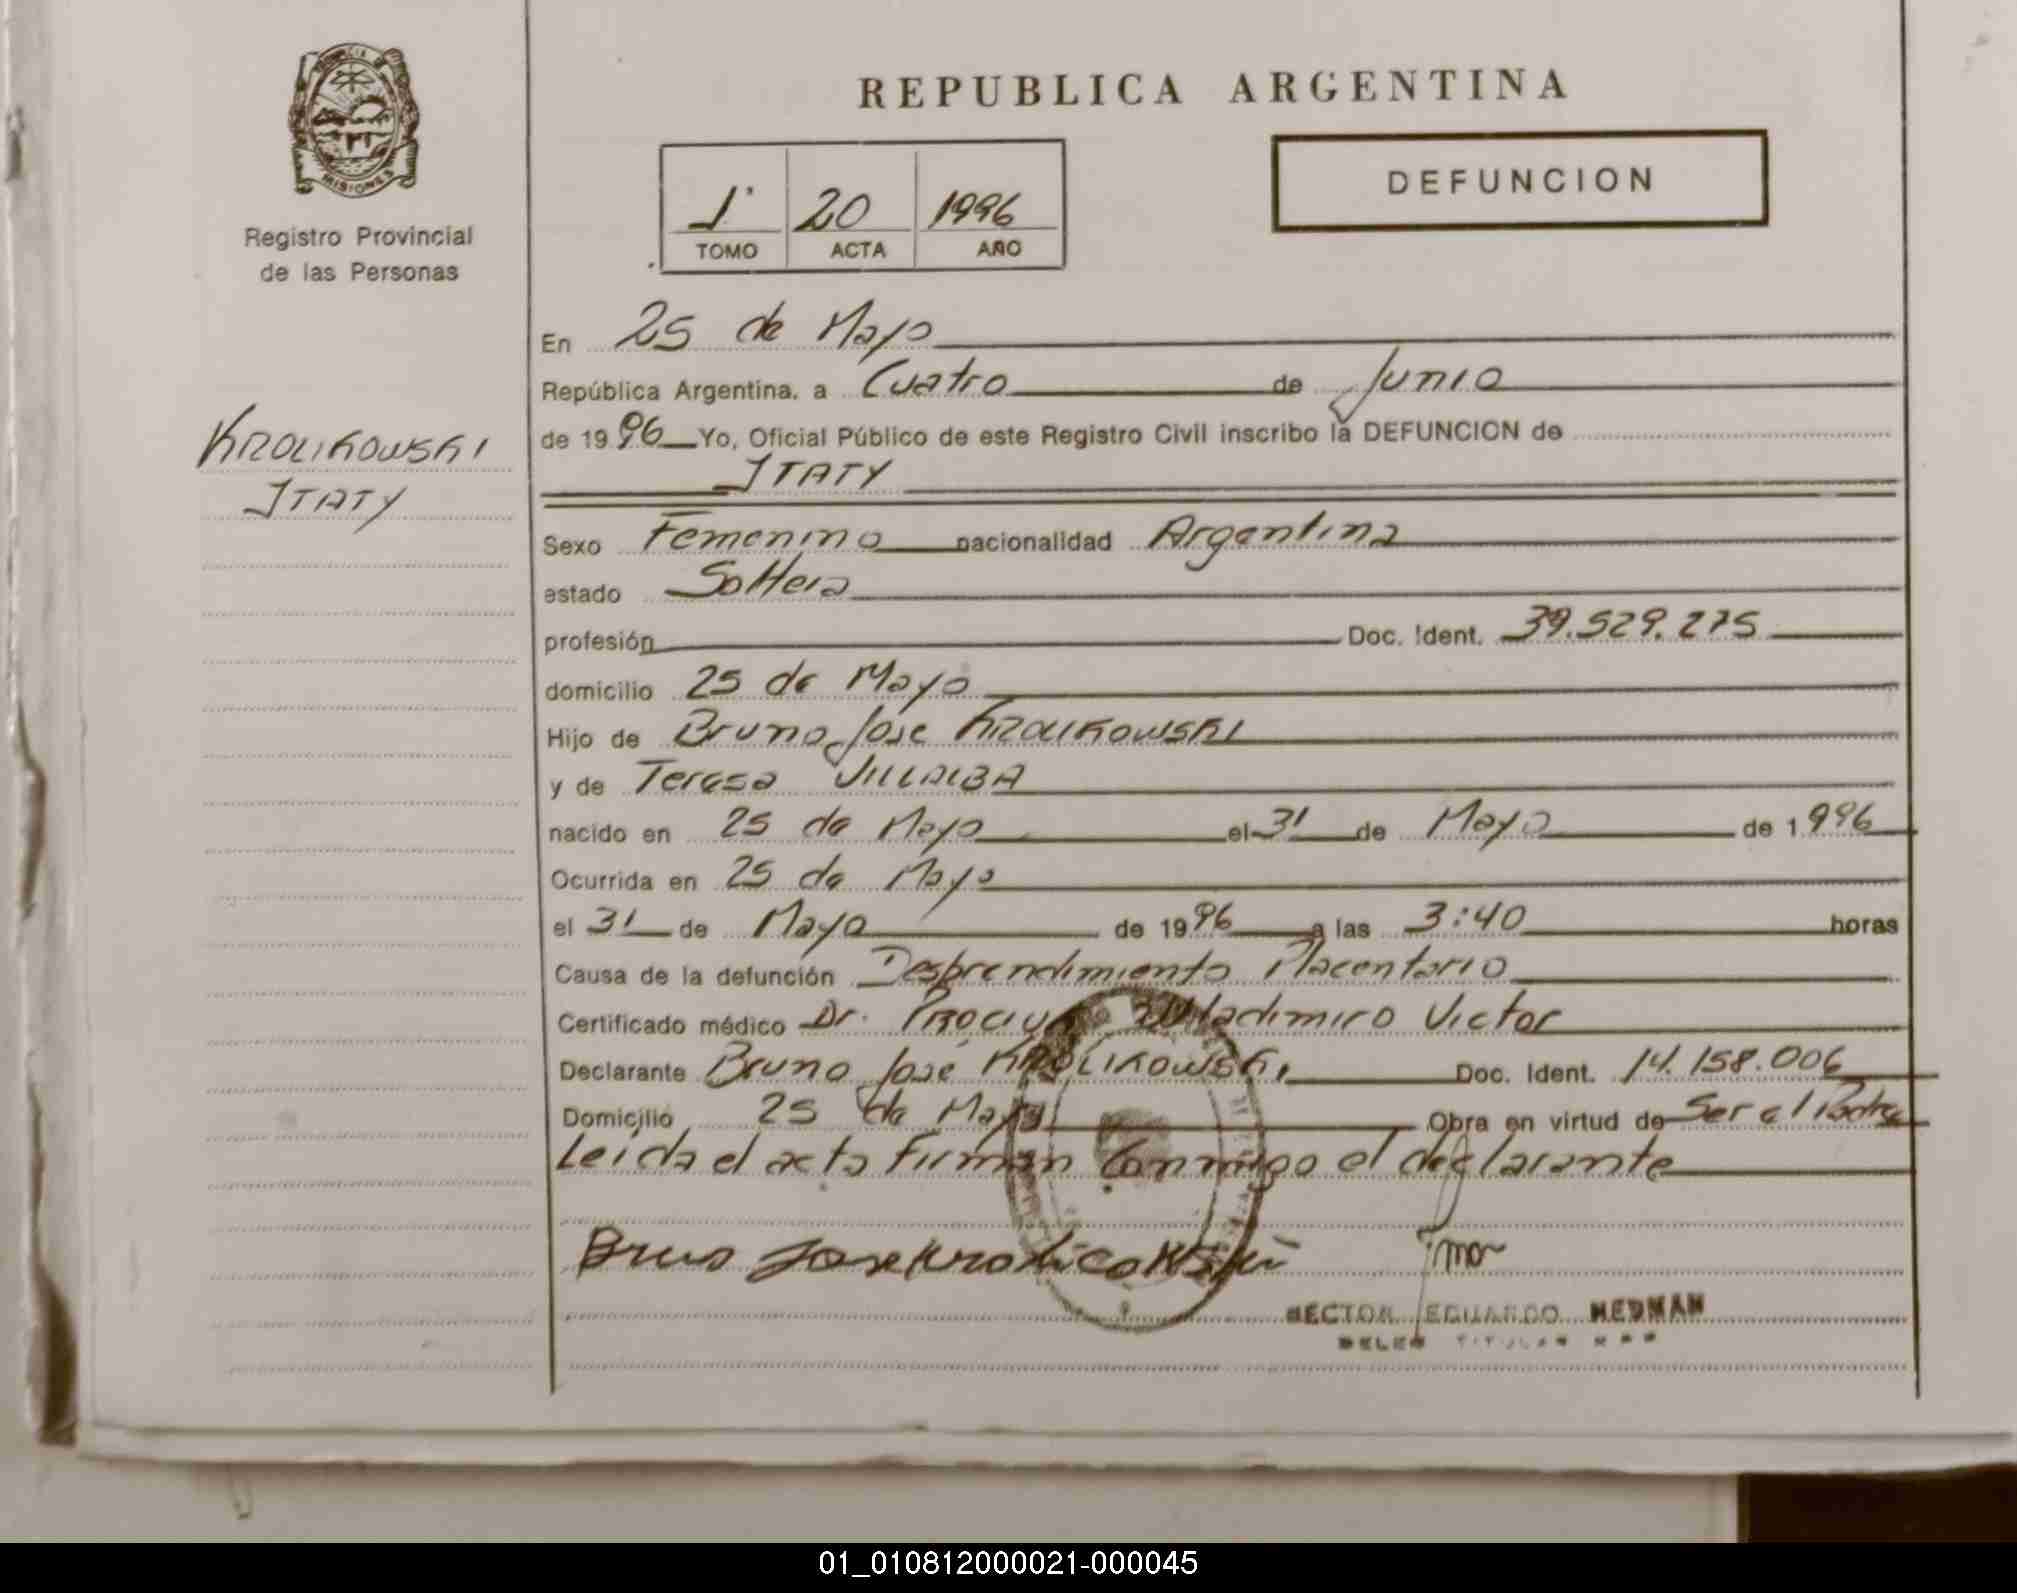 PROVINCIA DE
MISIONES
Registro Provincial
de las Personas
REPUBLICA ARGENTINA
DEFUNCION
1° 20 1996
TOMO ACTA AÑO
En 25 de Mayo
República Argentina, a Cuatro de Junio
de 1996 Yo, Oficial Público de este Registro Civil inscribo la DEFUNCION de
ITATY
KROLIKOWSKI
ITATY
Sexo Femenino nacionalidad Argentina
estado Soltera
profesión Doc. Ident. 39.529.275
domicilio 25 de Mayo
Hijo de Bruno Jose KROLIKOWSKI
y de Teresa VILLALBA
nacido en 25 de Mayo el 31 de Mayo de 1996
Ocurrida en 25 de Mayo
el 31 de Mayo de 1996 a las 3:40 horas
Causa de la defunción Desprendimiento Placentario
Certificado médico Dr. Wladimiro Victor
Declarante Bruno José KROLIKOWSKI Doc. Ident. 14.158.006
Domicilio 25 de Mayo Obra en virtud de Ser el Padre
Leida el acta Firman Conmigo el declarante
Brus Jose Krolicowski
HECTOR EDUARDO NEDMAN
TITULAR
01_010812000021-000045